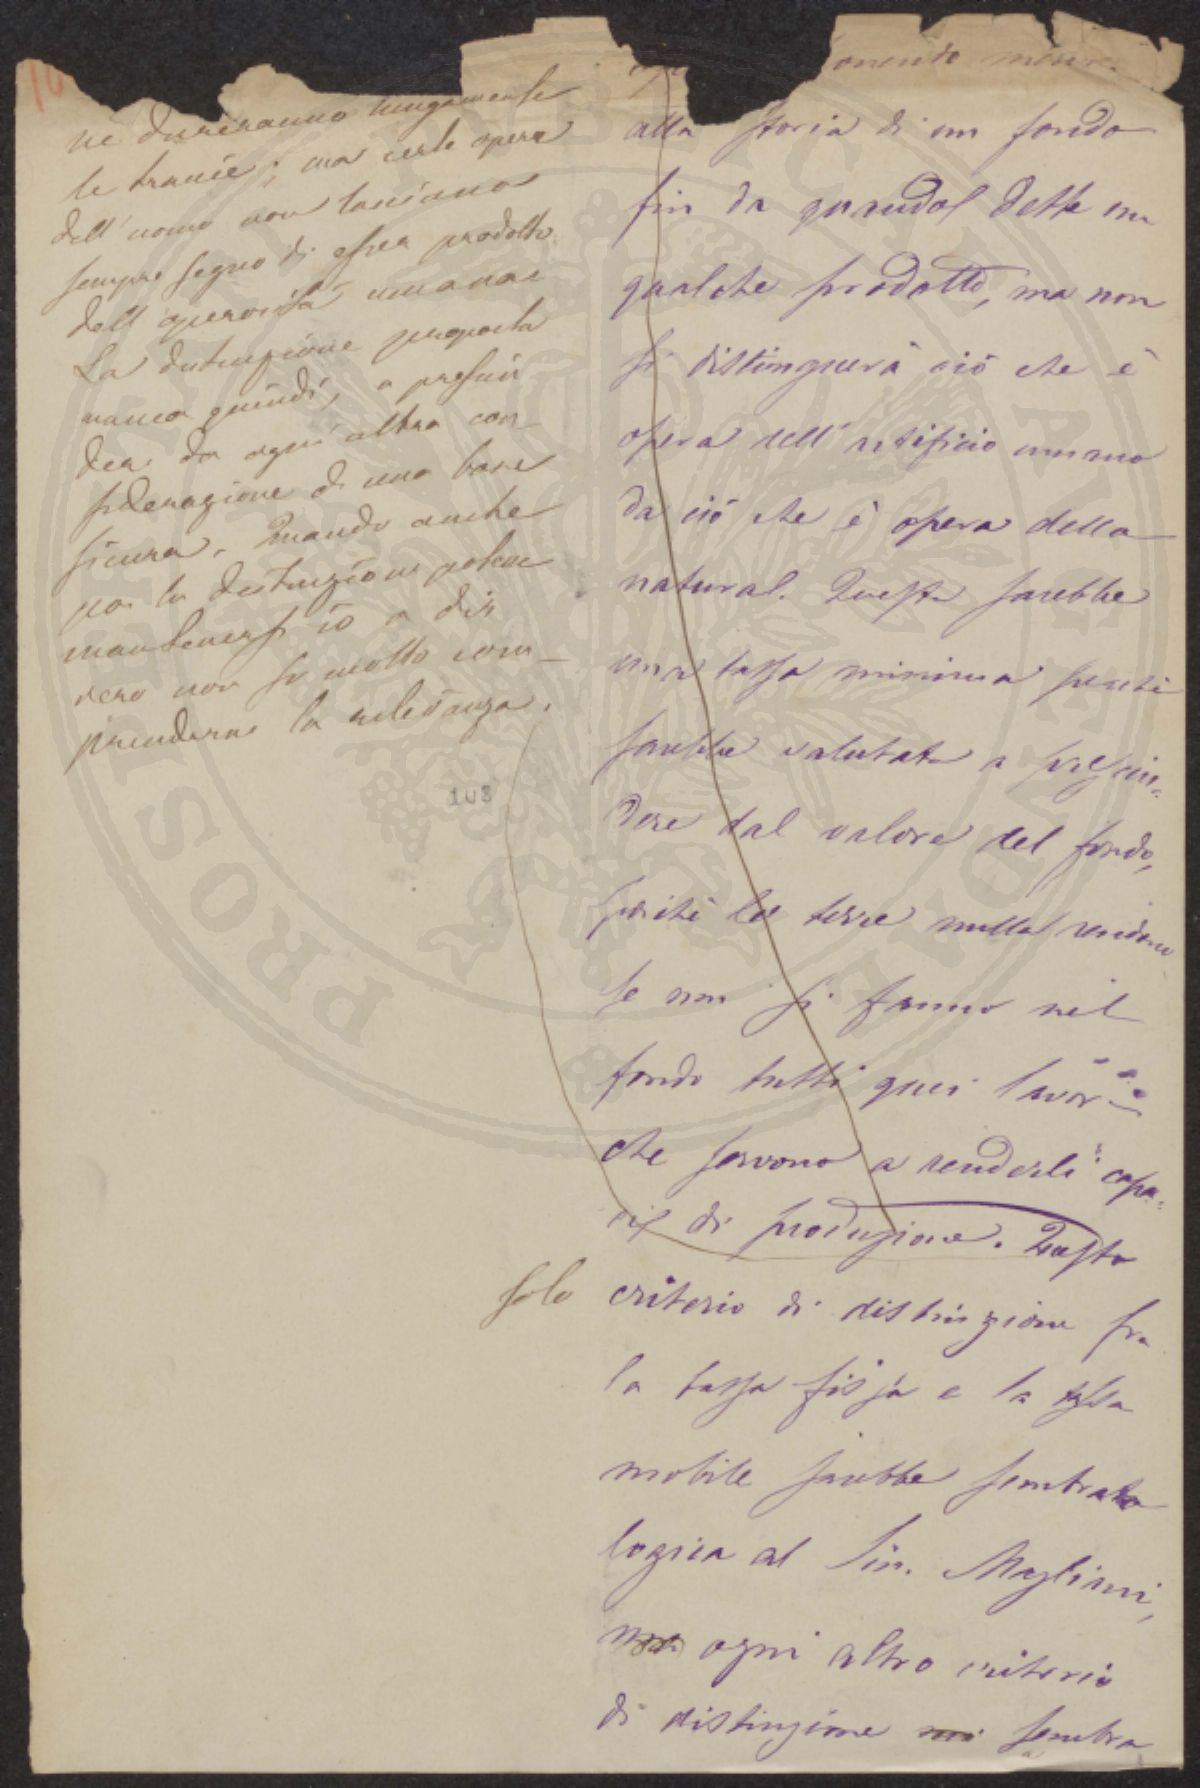 ne dureranno lungamente
le traccie; ma certe opere
dell'uomo non lasciano
sempre segno di esser prodotto
dell'operosità umana.
La distinzione proposta
manca quindi, a prescin
der da ogni altra con-
siderazione di una base
sicura. Quando anche
poi la distinzione potesse
mantenersi io a dir
vero non so molto com-
prenderne la rilevanza.
103
omendo
alla storia di un fondo
fin da quando dette un
qualche prodotto, ma non
si distinguerà ciò che è
opera dell'artificio umano
da ciò che è opera della
natura. Questa sarebbe
una tassa minima perchè
sarebbe valutata a prescin-
dere dal valore del fondo,
poichè le terre nulla rendono
se non si fanno nel
fondo tutti quei lavori
che servono a renderli capa-
ci di produzione. Questo
solo criterio di distinzione fra
la tassa fissa e la tassa
mobile sarebbe sembrato
logica al Sin. Magliani,
ma ogni altro criterio
di distinzione mi sembra
PROSSIMA